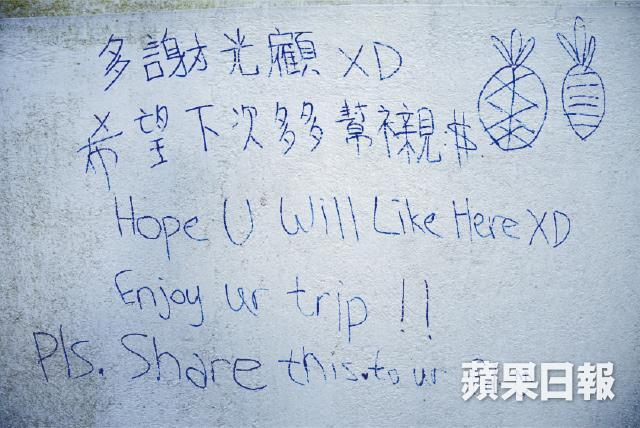 多謝光顧 XD
希望下次多多幫襯 $
Hope U Will Like Here XD
Enjoy ur trip !!
Pls. Share this to ur
蘋果日報